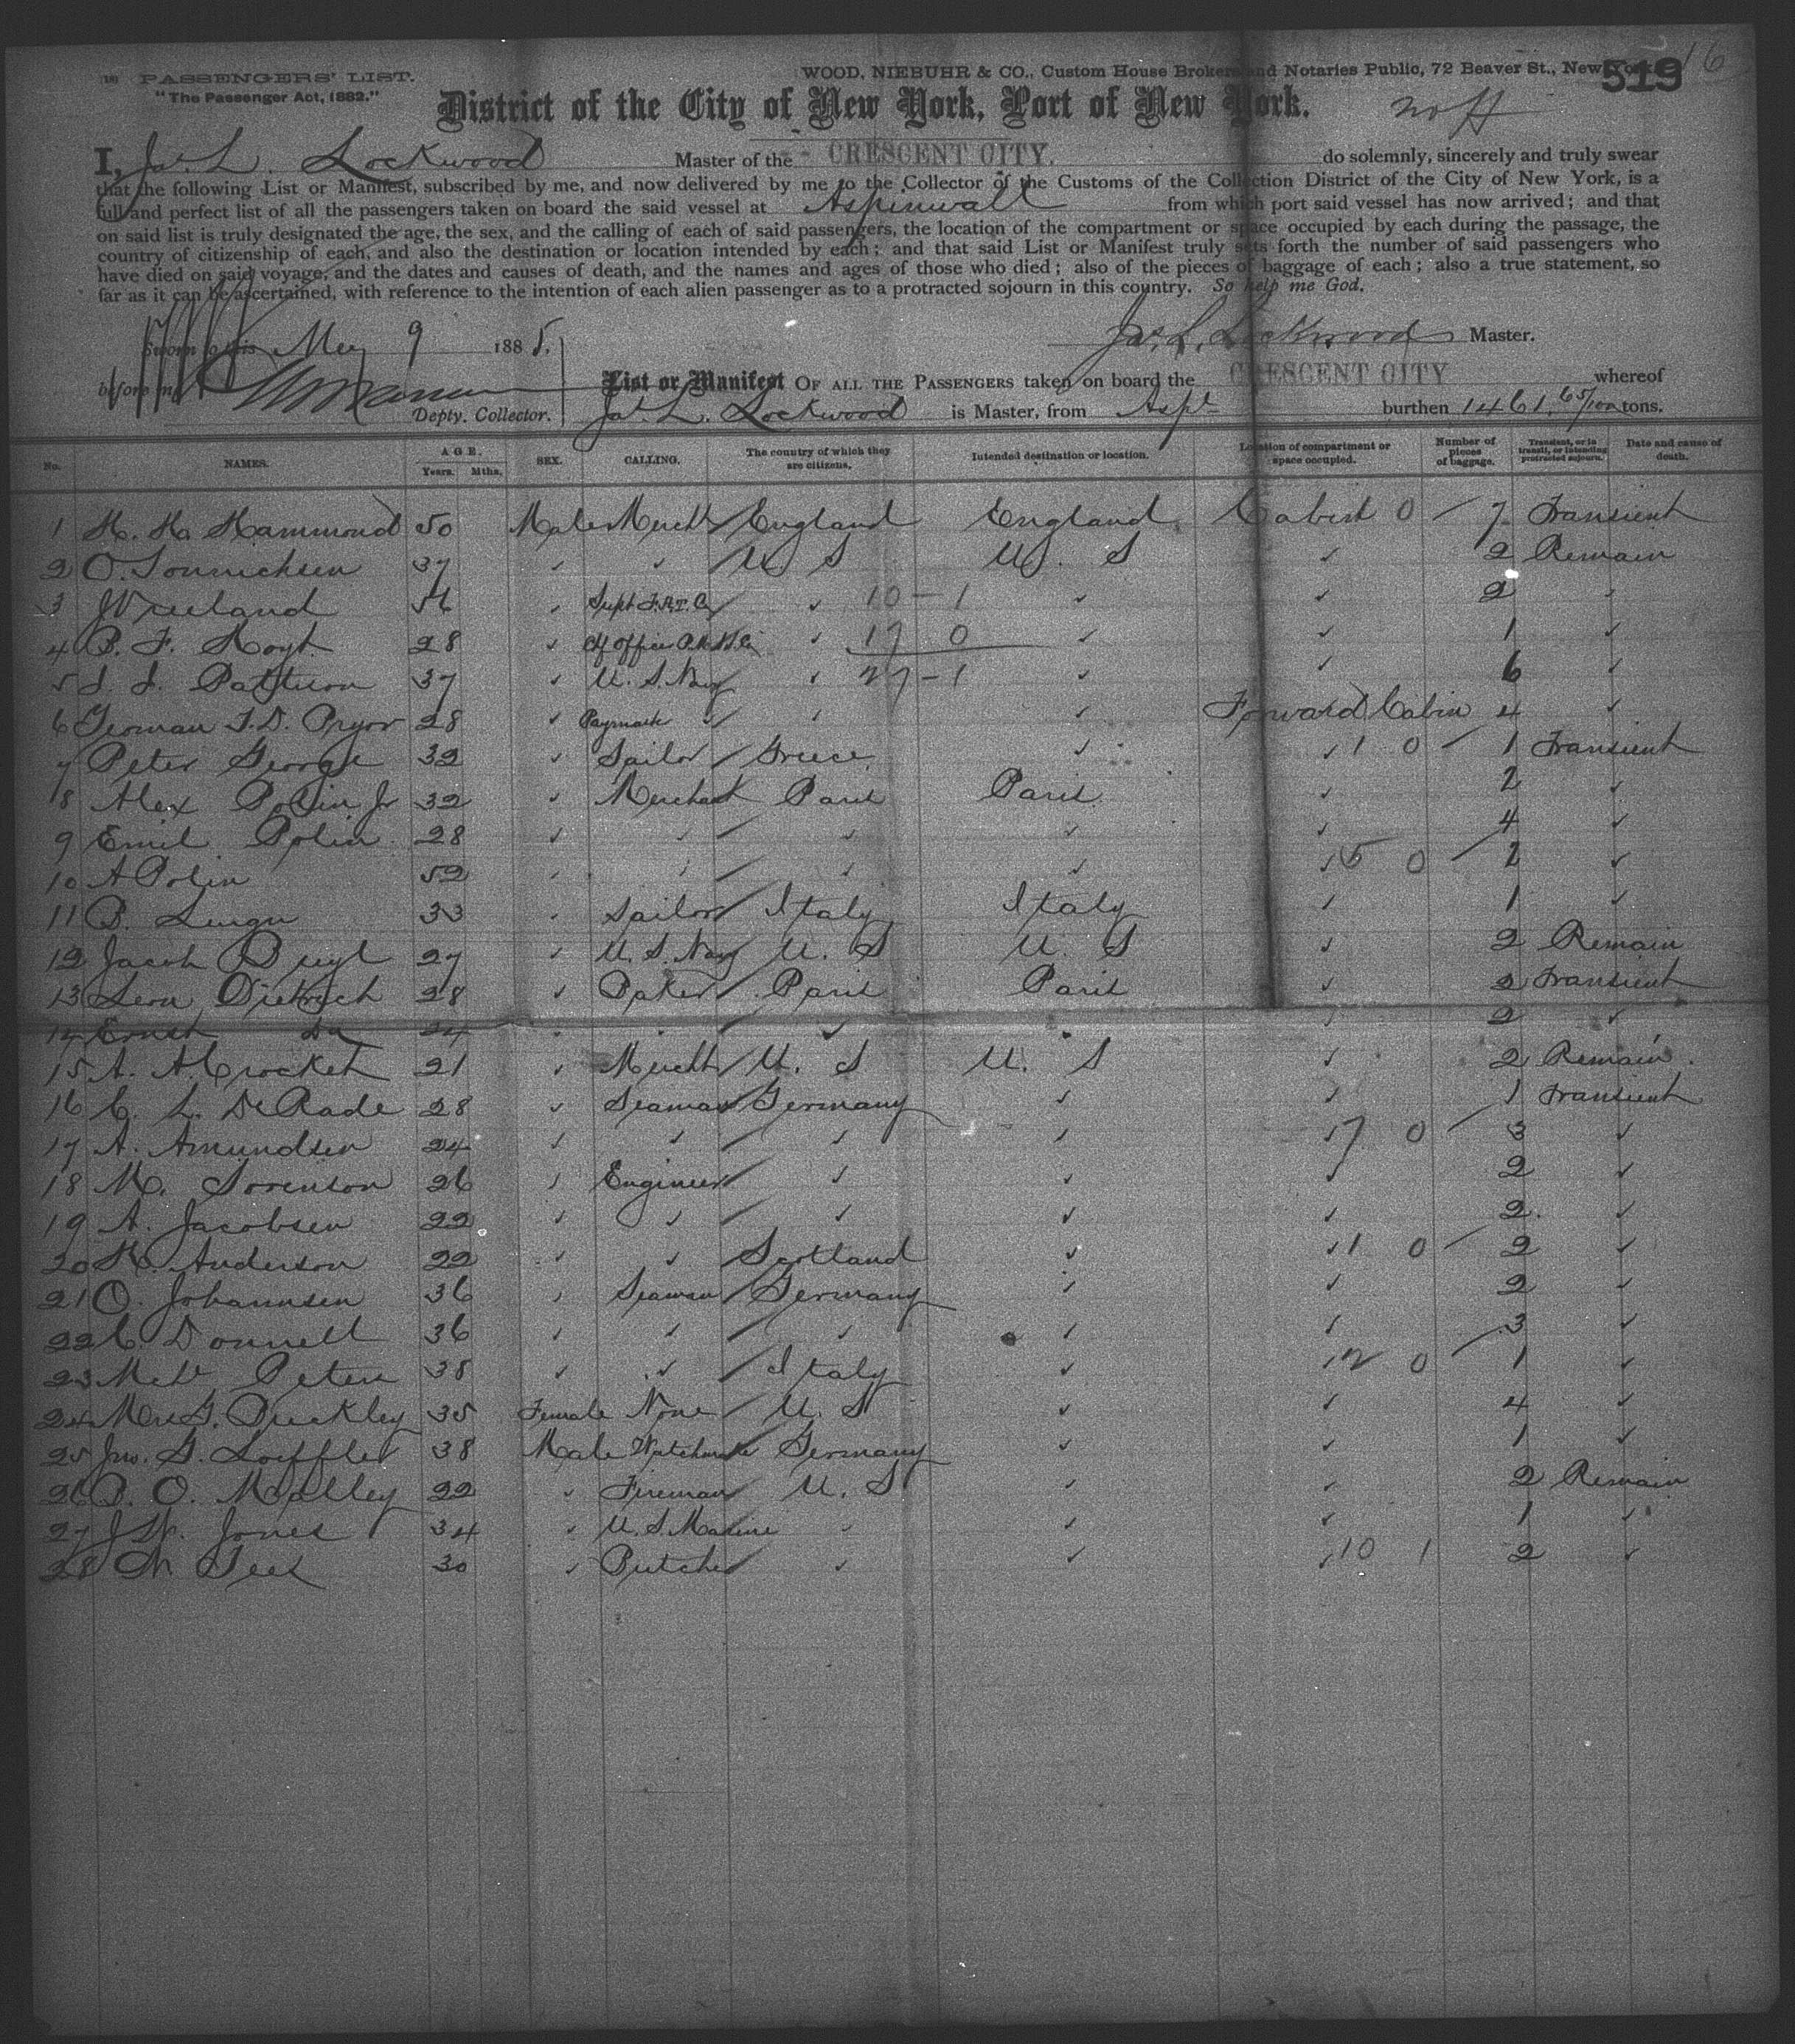 (18) PASSENGERS' LIST. WOOD, NIEBUHR & CO., Custom House Brokers and Notaries Public, 72 Beaver St., New York. 519 16
"The Passenger Act, 1882."
District of the City of New York, Port of New York.
I, Jas. L. Lockwood Master of the CRESCENT CITY. do solemnly, sincerely and truly swear
that the following List or Manifest, subscribed by me, and now delivered by me to the Collector of the Customs of the Collection District of the City of New York, is a
full and perfect list of all the passengers taken on board the said vessel at Aspinwall from which port said vessel has now arrived; and that
on said list is truly designated the age, the sex, and the calling of each of said passengers, the location of the compartment or space occupied by each during the passage, the
country of citizenship of each, and also the destination or location intended by each; and that said List or Manifest truly sets forth the number of said passengers who
have died on said voyage, and the dates and causes of death, and the names and ages of those who died; also of the pieces of baggage of each; also a true statement, so
far as it can be ascertained, with reference to the intention of each alien passenger as to a protracted sojourn in this country. So help me God.
Sworn to this May 9 1885. Jas. L. Lockwood Master.
before me
Depty. Collector.
List or Manifest OF ALL THE PASSENGERS taken on board the CRESCENT CITY whereof
Jas. L. Lockwood is Master, from Aspl burthen 1461.65/100 tons.
No. NAMES. AGE. Years. Mths. SEX. CALLING. The country of which they are citizens. Intended destination or location. Location of compartment or space occupied. Number of pieces of baggage. Transient, or in transit, or intending protracted sojourn. Date and cause of death.
1 H. H. Hammond 50 Male Mercht England England Cabin 0 7 Transient
2 O. Sonnichsen 37 ✓ ✓ U S U. S ✓ 2 Remain
3 J Vreeland 56 ✓ Supt 10 - 1 ✓ 2 ✓
4 B. F. Hoyt 28 ✓ ✓ 17 0 ✓ ✓ 1 ✓
5 J. J. Pattison 37 ✓ U. S. Navy ✓ 27 - 1 ✓ ✓ 6 ✓
6 Yeoman T. D. Pryor 28 ✓ ✓ ✓ Forward Cabin 4 ✓
7 Peter George 32 ✓ Sailor Greece ✓ ✓ 1 0 1 Transient
8 Alex Polin Jr 32 ✓ Merchant Paris Paris ✓ 2 ✓
9 Emil Polin 28 ✓ ✓ ✓ ✓ ✓ 4 ✓
10 A Polin 52 ✓ ✓ ✓ ✓ ✓ 5 0 2 ✓
11 B. 33 ✓ Sailor Italy Italy ✓ 1 ✓
12 Jacob 27 ✓ U. S. Navy U. S U. S ✓ 2 Remain
13 Leon Dietrich 28 ✓ Baker Paris Paris ✓ 2 Transient
14 Ernst Do 24 ✓ ✓ ✓ ✓ ✓ 2 ✓
15 A. A. Crocket 21 ✓ Mercht U. S U. S ✓ 2 Remain
16 C. L. De Rade 28 ✓ Seaman Germany ✓ ✓ 1 Transient
17 A. Amundsen 24 ✓ ✓ ✓ ✓ ✓ 7 0 3 ✓
18 M. Sorenson 26 ✓ Engineer ✓ ✓ ✓ 2 ✓
19 A. Jacobsen 22 ✓ ✓ ✓ ✓ ✓ 2 ✓
20 H. Anderson 22 ✓ ✓ Scotland ✓ ✓ 1 0 2 ✓
21 O. Johannsen 36 ✓ Seaman Germany ✓ ✓ 2 ✓
22 C. Donnell 36 ✓ ✓ ✓ ✓ ✓ 3 ✓
23 Peters 38 ✓ ✓ Italy ✓ ✓ 2 0 1 ✓
24 Mrs G. Buckley 35 Female None U. S ✓ ✓ 4 ✓
25 Jno. G. Loeffler 38 Male Watchmaker Germany ✓ ✓ 1 ✓
26 P. O. Malley 22 ✓ Fireman U. S ✓ ✓ 2 Remain
27 J W. Jones 34 ✓ U. S. Marine ✓ ✓ ✓ 1 ✓
28 30 ✓ Butcher ✓ ✓ ✓ 10 1 2 ✓